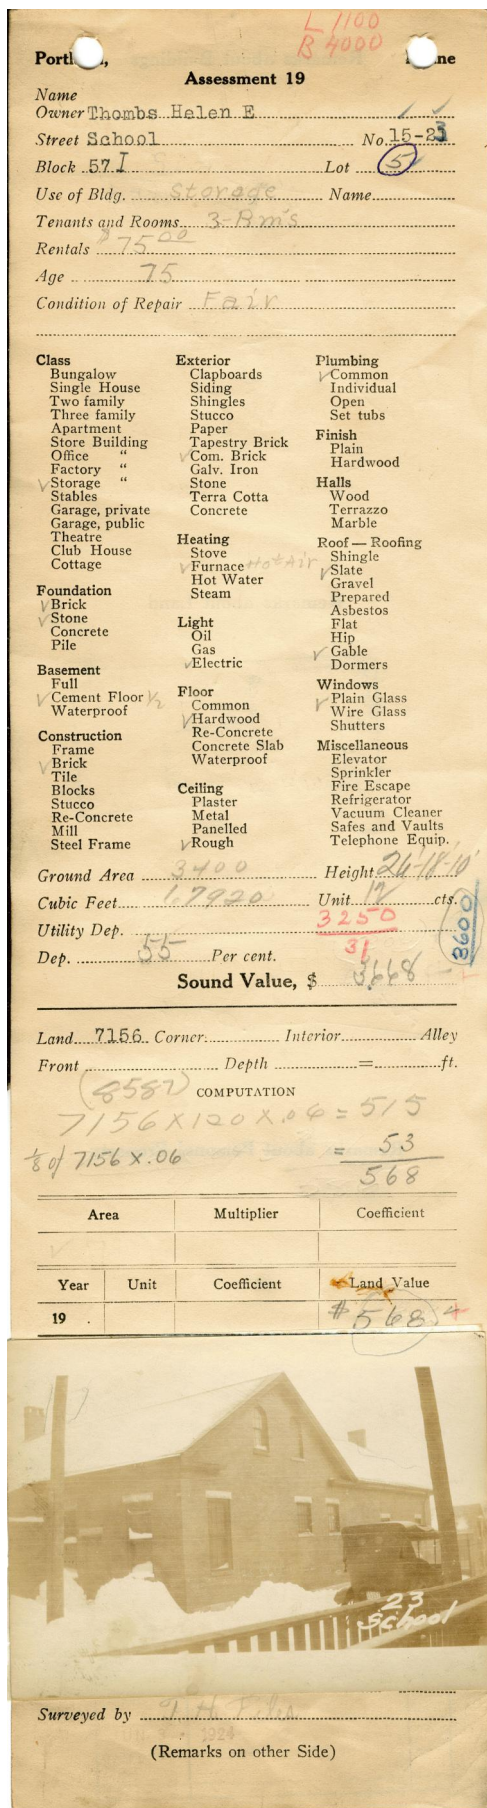 L 1100
B 4000
Assessment 19
Name
Owner Thombs Helen E
Street School No. 15-23
Block 57 I Lot 5
Use of Bldg. Storage Name
Tenants and Rooms 3-Rm's
Rentals $75.00
Age 75
Condition of Repair Fair
Class
Bungalow
Single House
Two family
Three family
Apartment
Store Building
Office "
Factory "
✓ Storage "
Stables
Garage, private
Garage, public
Theatre
Club House
Cottage
Foundation
✓ Brick
✓ Stone
Concrete
Pile
Basement
Full
✓ Cement Floor ½
Waterproof
Construction
Frame
✓ Brick
Tile
Blocks
Stucco
Re-Concrete
Mill
Steel Frame
Exterior
Clapboards
Siding
Shingles
Stucco
Paper
Tapestry Brick
✓ Com. Brick
Galv. Iron
Stone
Terra Cotta
Concrete
Heating
Stove
✓ Furnace Hot Air
Hot Water
Steam
Light
Oil
Gas
✓ Electric
Floor
Common
✓ Hardwood
Re-Concrete
Concrete Slab
Waterproof
Ceiling
Plaster
Metal
Panelled
✓ Rough
Plumbing
✓ Common
Individual
Open
Set tubs
Finish
Plain
Hardwood
Halls
Wood
Terrazzo
Marble
Roof — Roofing
Shingle
✓ Slate
Gravel
Prepared
Asbestos
Flat
Hip
✓ Gable
Dormers
Windows
✓ Plain Glass
Wire Glass
Shutters
Miscellaneous
Elevator
Sprinkler
Fire Escape
Refrigerator
Vacuum Cleaner
Safes and Vaults
Telephone Equip.
Ground Area 3400 Height 26'-18'-10'
Cubic Feet Unit 17 cts.
Utility Dep. 3250
31
3600
Dep. 55 Per cent.
Sound Value, $ 3668
Land 7156 Corner Interior Alley
Front Depth = ft.
(8587)
COMPUTATION
7156 X 120 X .06 = 515
⅛ of 7156 X .06 = 53
568
Area Multiplier Coefficient
Year Unit Coefficient Land Value
19 . $568
23
School
Surveyed by
(Remarks on other Side)